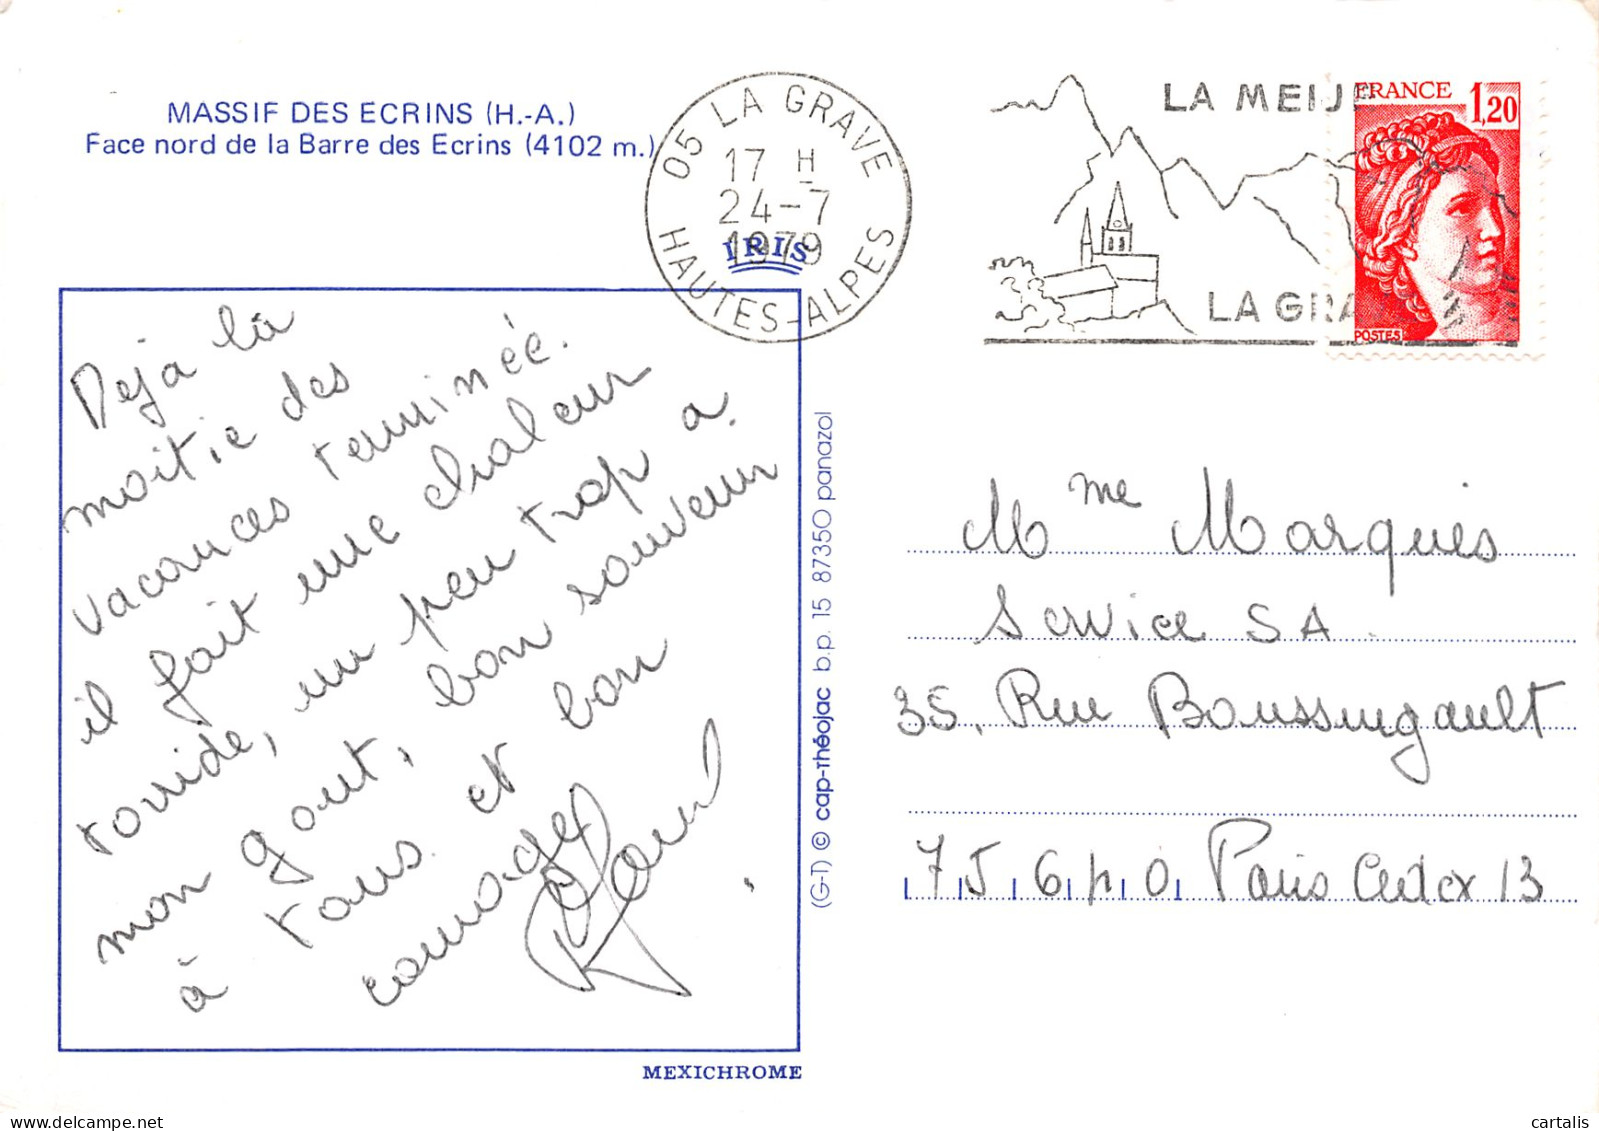 MASSIF DES ECRINS (H.-A.)
Face nord de la Barre des Ecrins (4102 m.)
05 LA GRAVE
17 H
24-7
1979
HAUTES-ALPES
IRIS
LA MEIJ
LA GRA
FRANCE 1,20
POSTES
Deja la
moitie des
vacances terminée.
il fait une chaleur
torride, un peu trop a
mon gout, bon souvenir
à tous et bon
courage
(G-T) © cap-théojac b.p. 15 87350 panazol
Mme Marques
Service SA.
35, Rue Boussingault
75640 Paris Cedex 13
MEXICHROME
cartalis
delcampe.net